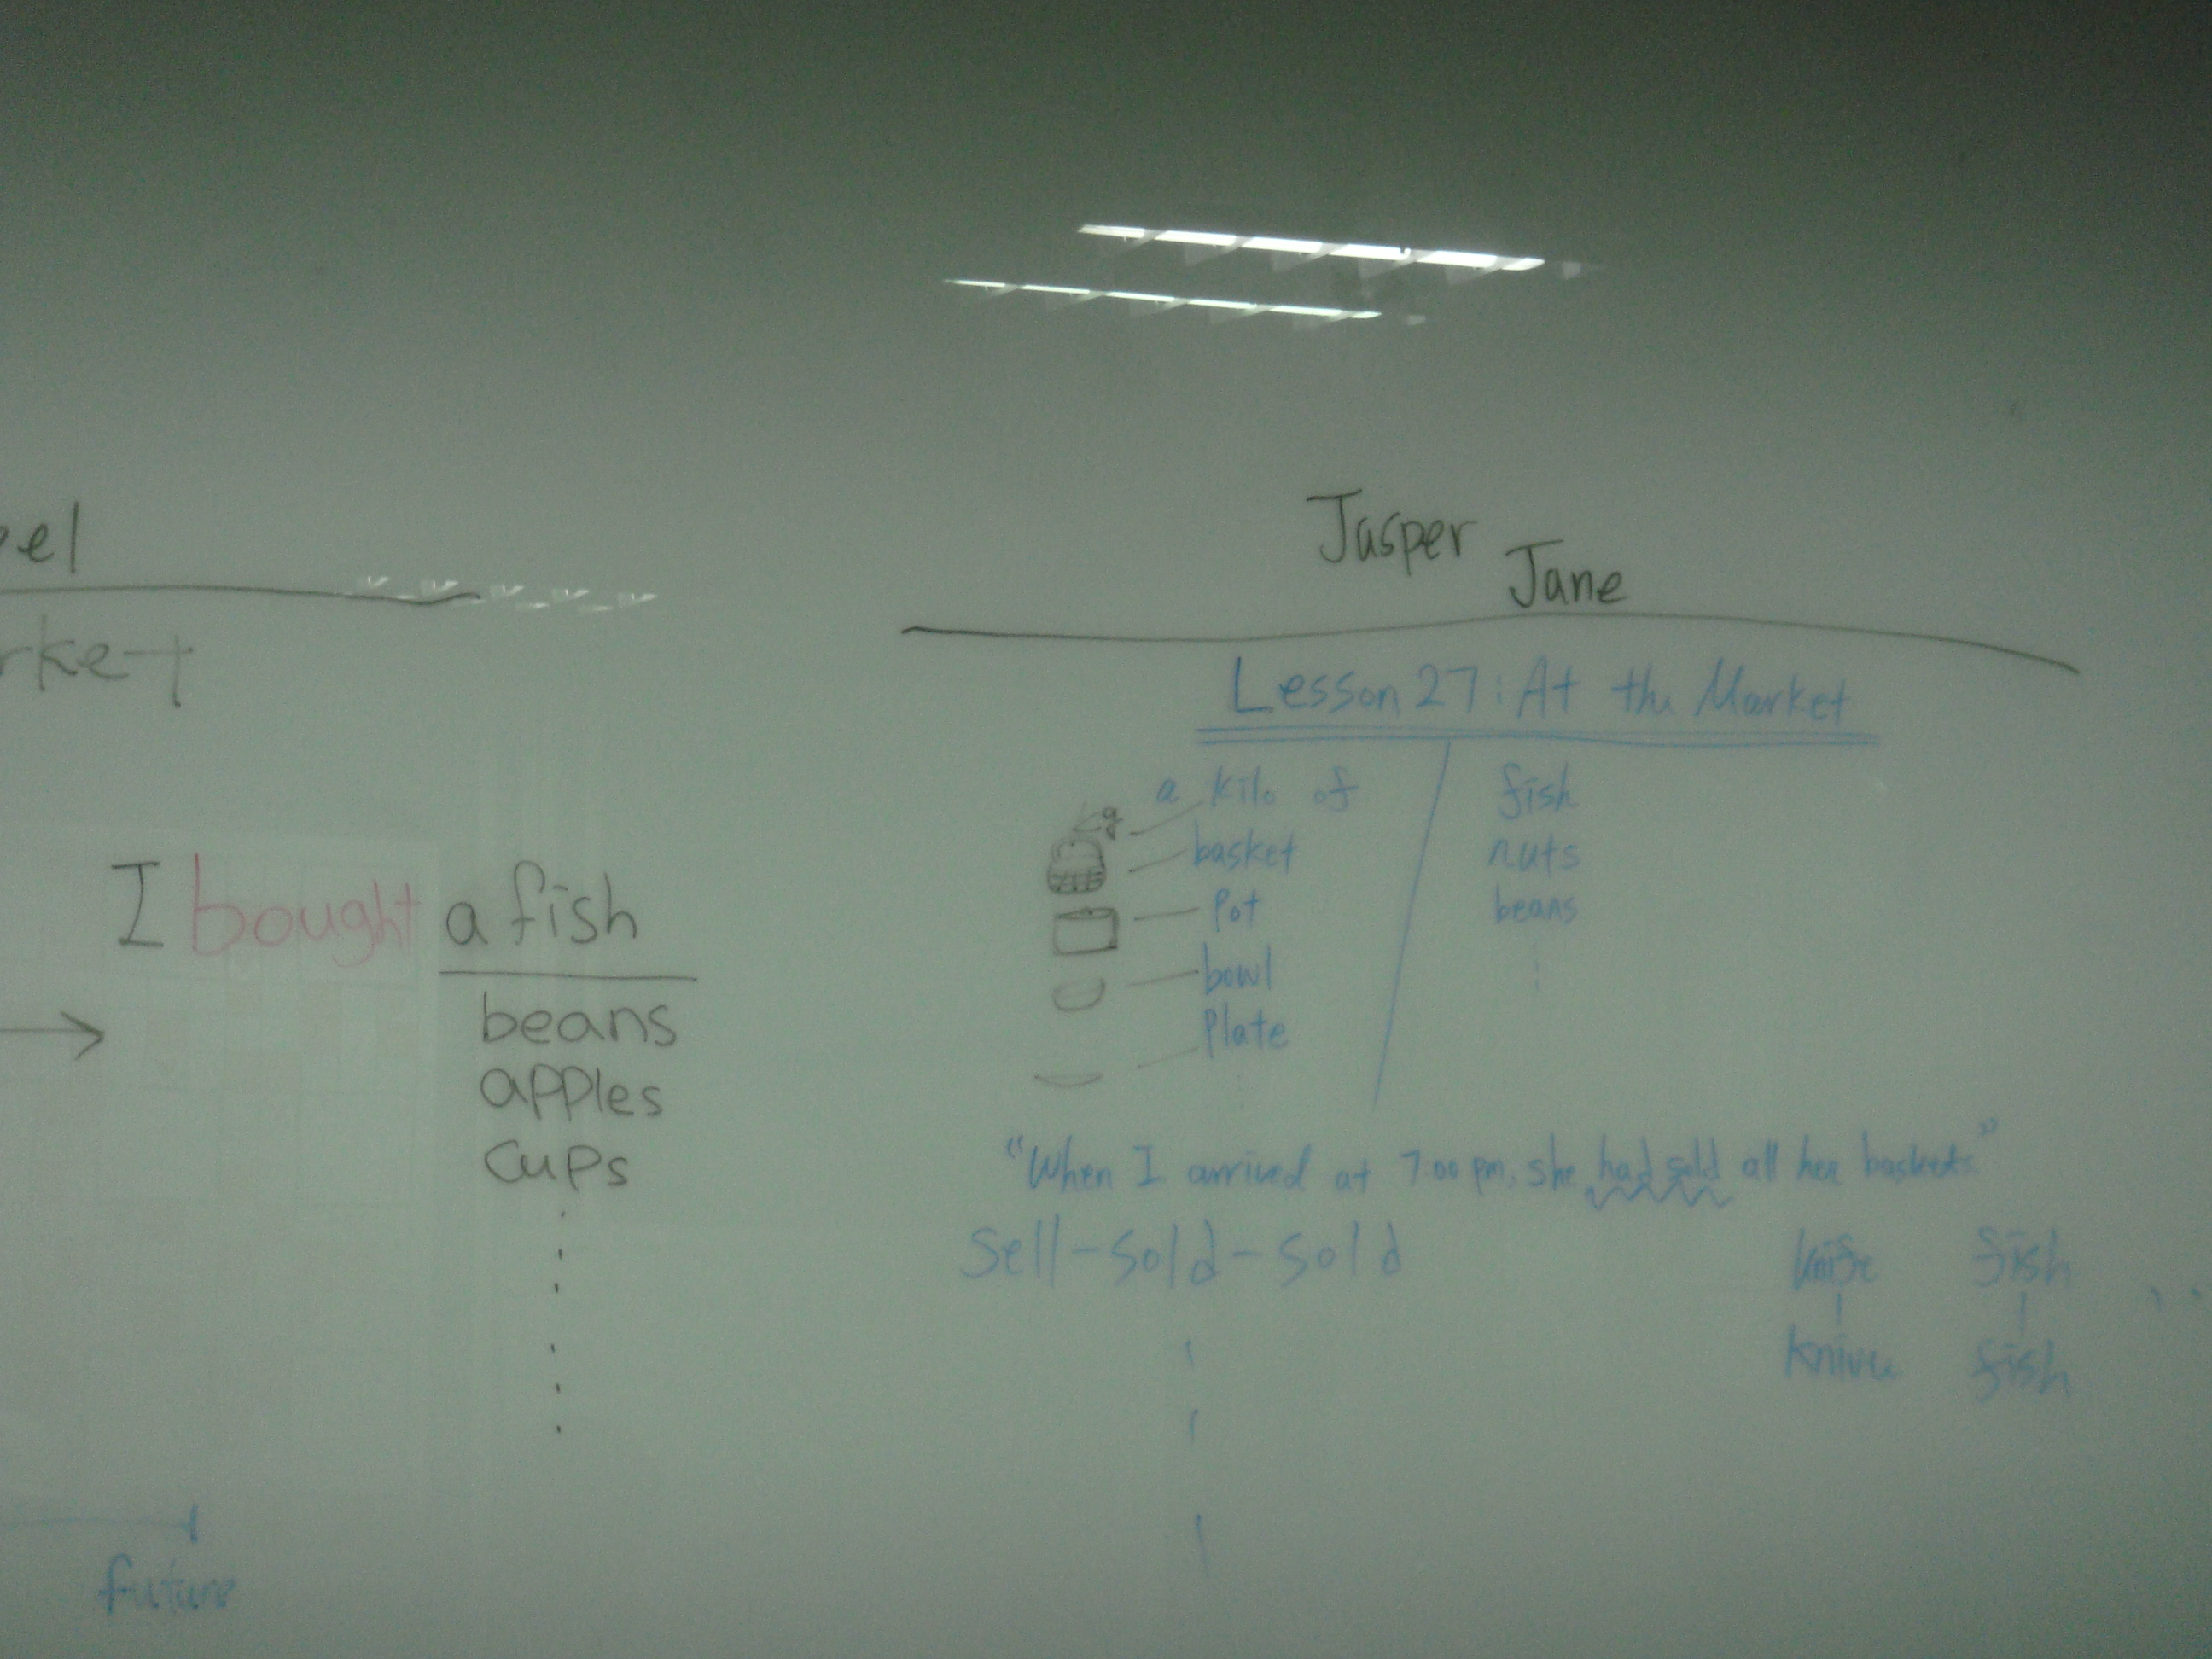 el
rket
I bought a fish
beans
apples
cups
future
Jasper
Jane
Lesson 27: At the Market
a kilo of fish
basket nuts
Pot beans
bowl
Plate
"When I arrived at 7:00 pm, she had sold all her baskets"
Sell-Sold-Sold
knife fish
knives fish